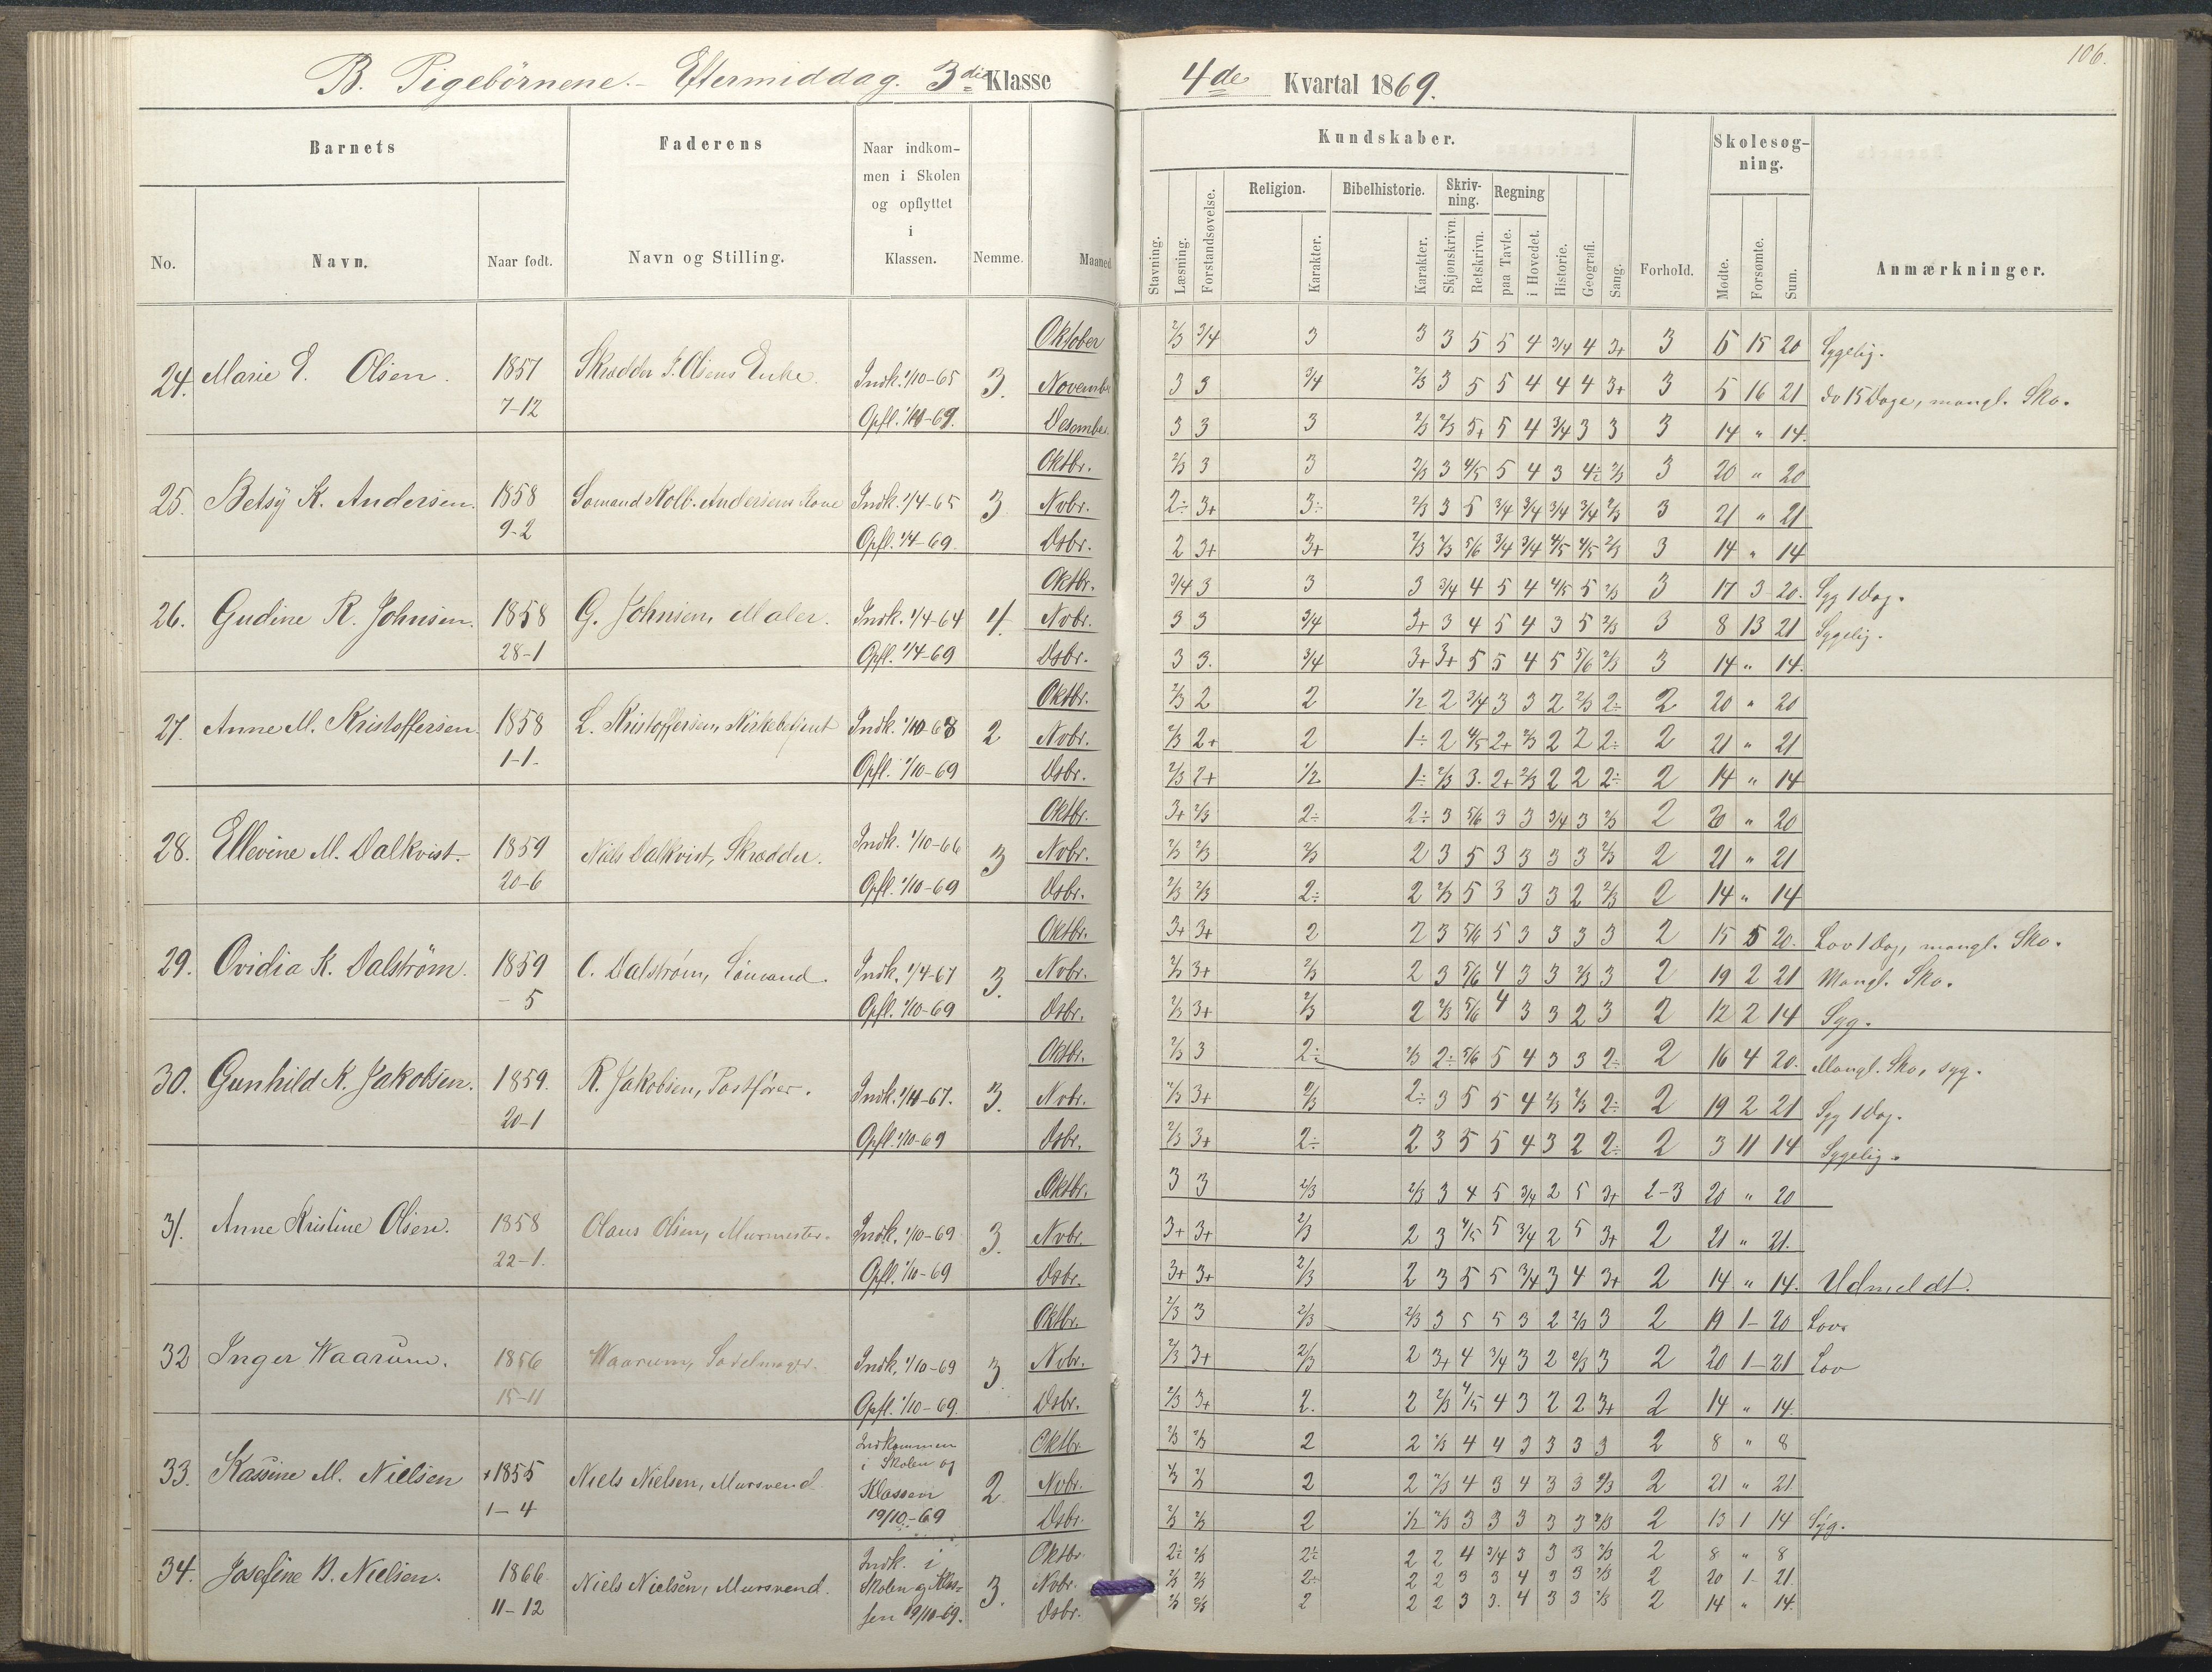 B. Pigebörnene. - Eftermiddag. 3die Klasse
4de Kvartal 1869.
106.
Barnets
Faderens
Naar indkom-
men i Skolen
og opflyttet
i
Klassen.
No.
Navn.
Naar født.
Navn og Stilling.
Nemme.
Maaned
Kundskaber.
Skolesøg-
ning.
Stavning.
Læsning.
Forstandsøvelse.
Religion.
Karakter.
Bibelhistorie.
Karakter.
Skriv-
ning.
Skjønskrivn.
Retskrivn.
Regning
paa Tavle.
i Hovedet.
Historie.
Geografi.
Sang.
Forhold.
Mødte.
Forsømte.
Sum.
Anmærkninger.
Oktober 2/3 3/4 3 3 3 5 5 4 3/4 4 3+ 3 5 15 20 Sygelig.
24. Marie E. Olsen. 1857 Skrædder J. Olsens Enke. Indk. 1/10-65 3. November 3 3 3/4 2/3 3 5 5 4 4 4 3+ 3 5 16 21 do 15 Dage, mangl. Sko.
7-12 Opfl. 1/10-69. Desember 3 3 3 2/3 2/3 5+ 5 4 3/4 3 3 3 14 " 14.
Oktbr. 2/3 3 3 2/3 3 4/5 5 4 3 4÷ 2/3 3 20 " 20
25. Betsÿ K. Andersen. 1858 Sømand Kolb. Andersens Kone Indk. 1/4-65 3 Nvbr. 2÷ 3+ 3÷ 2/3 3 5 3/4 3/4 3/4 3/4 2/3 3 21 " 21
9-2 Opfl. 1/4-69. Dsbr. 2 3+ 3+ 2/3 2/3 5/6 3/4 3/4 4/5 4/5 2/3 3 14 " 14
Oktbr. 3/4 3 3 3 3/4 4 5 4 4/5 5 2/3 3 17 3 20. Syg 1 Dag.
26. Gudine R. Johnsen. 1858 G. Johnsen, Maler. Indk. 1/4-64 4. Nvbr. 3 3 3/4 3+ 3 4 5 4 3 5 2/3 3 8 13 21 Sygelig.
28-1 Opfl. 1/4-69 Dsbr. 3 3. 3/4 3+ 3+ 5 5 4 5 5/6 2/3 3 14 " 14.
Oktbr. 2/3 2 2 1/2 2 3/4 3 3 2 2/3 2÷ 2 20 " 20
27. Anne M. Kristoffersen. 1858 L. Kristoffersen, Kirkebetjent Indk. 1/10-68 2 Nvbr. 2/3 2+ 2 1÷ 2 4/5 2+ 2/3 2 2 2÷ 2 21 " 21
1-1- Opfl. 1/10-69 Dsbr. 2/3 2+ 1/2 1÷ 2/3 3. 2+ 2/3 2 2 2÷ 2 14 " 14
Oktbr. 3+ 2/3 2÷ 2÷ 3 5/6 3 3 3/4 3 2/3 2 20 " 20
28. Ellevine M. Dalkvist. 1859 Niels Dalkvist, Skrædder. Indk. 1/10-66 3 Nvbr. 2/3 2/3 2/3 2 3 5 3 3 3 3 2/3 2 21 " 21
20-6 Opfl. 1/10-69 Dsbr. 2/3 2/3 2÷ 2 2/3 5 3 3 3 2 2/3 2 14 " 14
Oktbr. 3+ 3+ 2 2 3 5/6 5 3 3 3 3 2 15 5 20. Lov 1 Dag, mangl. Sko.
29. Ovidia K. Dalström. 1859 C. Dalström, Sömand. Indk. 1/4-67 3. Nvbr. 2/3 3+ 2/3 2 3 5/6 4 3 3 2/3 3 2 19 2 21 Mangl. Sko.
- 5 Opfl. 1/10-69 Dsbr. 2/3 3+ 2/3 2 2/3 5/6 4 3 3 2 3 2 12 2 14 Syg.
Oktbr. 2/3 3 2÷ 2/3 2÷ 5/6 5 4 3 3 2÷ 2 16 4 20. Mangl. Sko, syg.
30. Gunhild K. Jakobsen. 1859. R. Jakobsen, Postförer. Indk. 1/4-67. 3. Nvbr. 2/3 3+ 2/3 2÷ 3 5 5 4 2/3 2/3 2÷ 2 19 2 21 Syg 1 Dag.
20-1 Opfl. 1/10-69 Dsbr. 2/3 3+ 2÷ 2 3 5 5 4 3 2 2÷ 2 3 11 14 Sygelig.
Oktbr. 3 3 2/3 2/3 3 4 5 3/4 2 5 3+ 2-3 20 " 20
31. Anne Kristine Olsen. 1858 Olaus Olsen, Murmester. Indk. 1/10-69 3. Nvbr. 3+ 3+ 2/3 2 3 4/5 5 3/4 2 5 3+ 2 21 " 21.
22-1. Opfl. 1/10-69 Dsbr. 3+ 3+ 2/3 2 3 5 5 3/4 3 4 3+ 2 14 " 14. Udmeldt.
Oktbr. 2/3 3 2/3 2/3 3 5 5 3 2 2/3 3 2 19 1- 20 Lov.
32 Inger Waarum. 1856 Waarum, Sadelmager. Indk. 1/10-69 3 Nvbr. 2/3 3+ 2/3 2 3+ 4 3/4 3 2 2/3 3 2 20 1- 21 Lov
15-11 Opfl. 1/10-69. Dsbr. 2/3 3+ 2. 2 2/3 4/5 4 3 2 2 3+ 2 14 " 14.
Indkommen Oktbr 2/3 2/3 2 2 2/3 4 4 3 3 3 3 2 8 " 8
i Skolen og
33. Kassine M. Nielsen +1855 Niels Nielsen, Mursvend Klassen 2. Nvbr. 2/3 2/3 2 2 2/3 4 3 4 3 3 2/3 2 21 " 21
1-4 19/10-69 Dsbr. 2/3 2/3 2 1/2 2/3 3 3 3 3 3 2/3 2 13 1 14 Syg.
Indk. i Oktbr. 2÷ 2/3 2÷ 2 2 4 3/4 3 3 3 2/3 2 8 " 8
34. Josefine B. Nielsen. 1866 Niels Nielsen, Mursvend. Skolen og Klas- 3. Nvbr. 2/3 2/3 2÷ 2 2 3 3 4 3 3 2/3 2 20 1- 21.
11-12 sen 19/10-69. Dsbr. 2/3 2/3 2 2 2 3 3. 4 3 3 2/3 2 14 " 14.